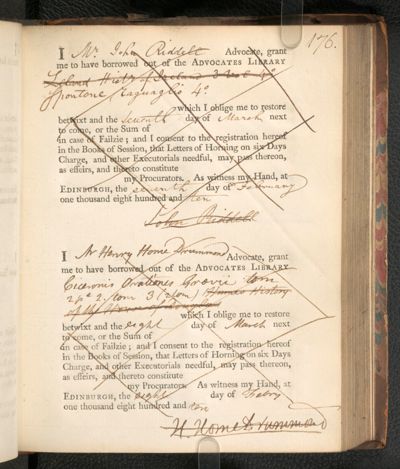 176.
I Mr. John Riddell Advocate, grant
me to have borrowed out of the ADVOCATES LIBRARY
3 Vol 4º
Spontone Raguaglio 4º
which I oblige me to restore
betwixt and the seventh day of March next
to come, or the Sum of
in case of Failzie; and I consent to the registration hereof
in the Books of Session, that Letters of Horning on six Days
Charge, and other Executorials needful, may pass thereon,
as effeirs, and thereto constitute
my Procurators. As witness my Hand, at
EDINBURGH, the seventh day of February
one thousand eight hundred and ten
John Riddell
I Mr Henry Home Drummond Advocate, grant
me to have borrowed out of the ADVOCATES LIBRARY
Ciceronis Orationes Graevii tom
2 pt 2. tom 3 (2 tom) Humes History
of the House of
which I oblige me to restore
betwixt and the eight day of March next
to come, or the Sum of
in case of Failzie; and I consent to the registration hereof
in the Books of Session, that Letters of Horning on six Days
Charge, and other Executorials needful, may pass thereon,
as effeirs, and thereto constitute
my Procurators. As witness my Hand, at
EDINBURGH, the eight day of Febry
one thousand eight hundred and ten
H. Home Drummond